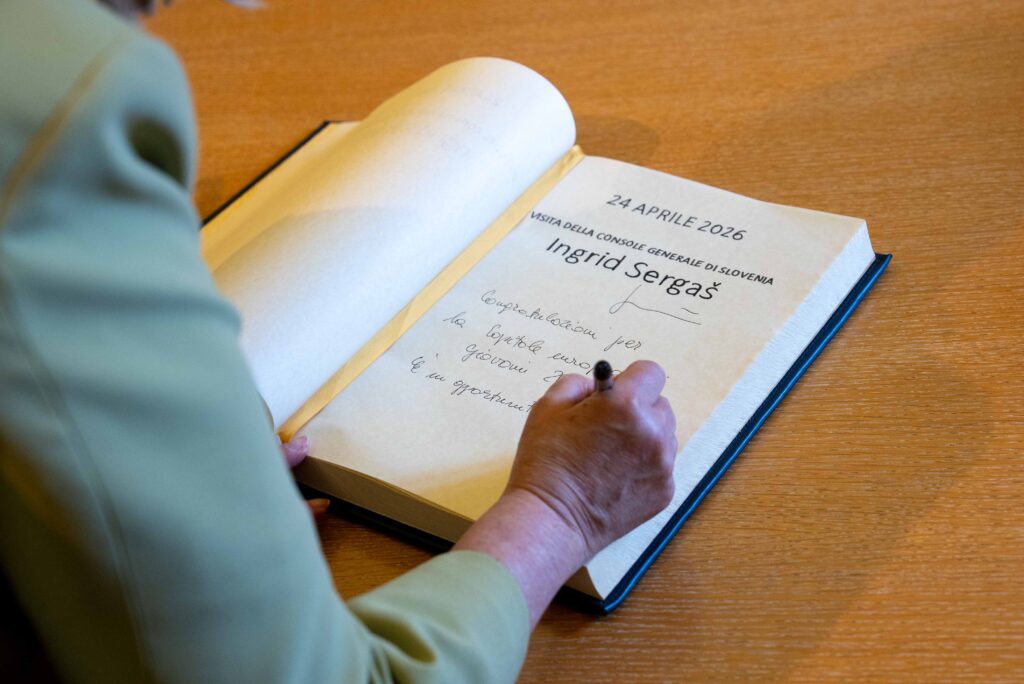 24 APRILE 2026
VISITA DELLA CONSOLE GENERALE DI SLOVENIA
Ingrid Sergaš
Congratulazioni per
la Capitale europea
giovani
È un opportunit